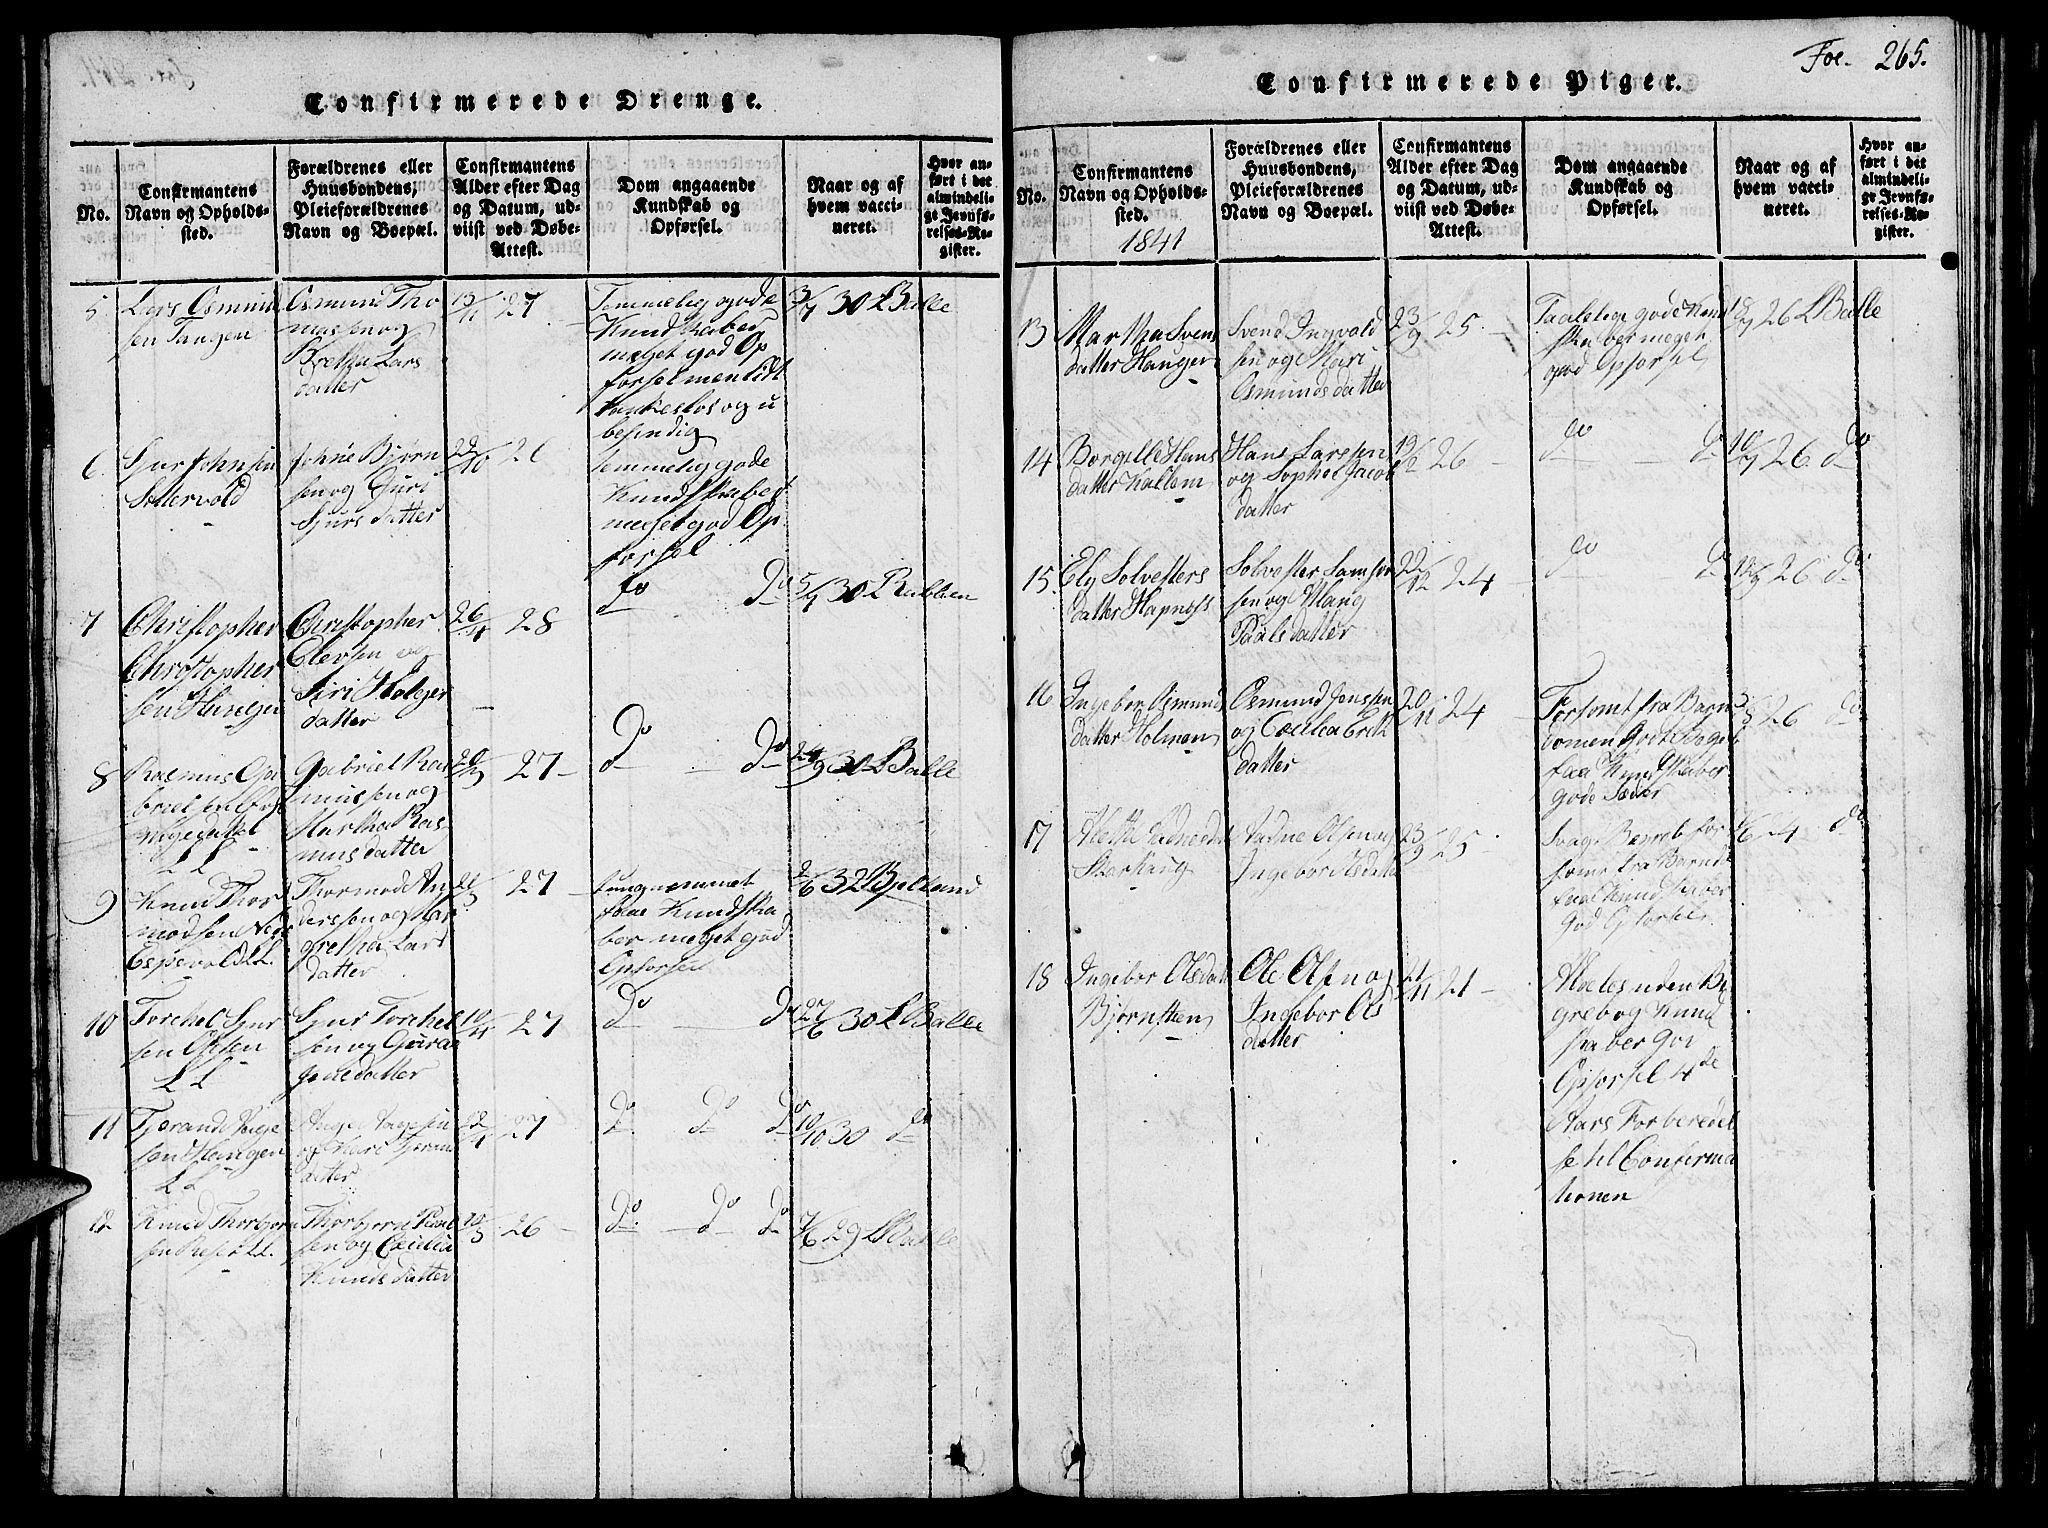 Confirmerede Drenge.
No.
Confirmantens
Navn og Opholds-
sted.
Forældrenes eller
Huusbondens,
Pleieforældrenes
Navn og Boepæl.
Confirmantens
Alder efter Dag
og Datum, ud-
viist ved Døbe-
Attest.
Dom angaaende
Kundskab og
Opførsel.
Naar og af
hvem vacci-
neret.
Hvor an-
ført i det
almindeli-
ge Jevnfø-
relses-Re-
gister.
5
Lars Osmun
sen Tangen
Osmund Tho
massen og
Bretha Lars
datter
13/11 27
Temmelig gode
Kundskaber
meget god Op
førsel men lidt
tankeløs og u
besindig
3/7 30 L Balle
6
Sjur Johnsen
Solervold
Johne Bjørn
sen og Guri
Sjurs datter
22/10 26
temmelig gode
Kundskaber
meget god Op
førsel
7
Christopher
Christopher
sen Haugen
Christopher
Elevsen og
Siri Holger
datter
26/11 28
do do
5/7 30 L Ballen
8
Rasmus Ga
brielsen
LL
Gabriel Ras
mussen og
Martha Ras
musdatter
27
do do
24/9 30 L Balle
9
Knud Thor
modsen
Espevold LL.
Thormod An
derssen og Mar
gretha Lars
datter
27
tungnemmet
Kundska
ber meget god
Opførsel
2/6 32 Bjelland
10
Torchel Sjur
sen
LL
Sjur Torchel
sen og
datter
10/11 27
do do
27/6 30 L Balle
11
Tjerand Aage
sen Haugen
LL
Aage Aagesen
og Mari Tjerands
datter
27
do do do
10/10 30 do
12
Knud Thorbjørn
sen LL.
Thorbjørn
sen og Cæcilia
Knuds datter
10/3 26
do do do
7/6 29 L Balle
Foe. 265.
Confirmerede Piger.
No.
Confirmantens
Navn og Opholds-
sted.
1841
Forældrenes eller
Huusbondens,
Pleieforældrenes
Navn og Boepæl.
Confirmantens
Alder efter Dag
og Datum, ud-
viist ved Døbe-
Attest.
Dom angaaende
Kundskab og
Opførsel.
Naar og af
hvem vacci-
neret.
Hvor an-
ført i det
almindeli-
ge Jevnfø-
relses-Re-
gister.
13
Martha Svens
datter Haugen
Svend Ingvald
sen og Mari
Osmunds datter
23/9 25
Taalelige gode Kund
skaber meget
god Opførsel
18/7 26 L Balle
14
Borgille Hans
datter Kallem
Hans Larssen
og Sophie Jacob
datter
19/12 26
do do
10/7 26 do
15.
Ely Solvesters
datter Hapnæss
Solvester Samson
sen og Mang
Paals datter
22/12 24
do do
26 do
16
Ingebor Osmunds
datter Holmen
Osmund Jonssen
og Cecilia Erik
datter
20/11 24
Forsømt fra Barn
dommen Godt Begreb
faa Kundskaber
gode Sæder
26 do
17
Aadne Olsen og
Ingebor Olsdatter
23/9 25
Svagt Begreb for
sømt fra Barnd
faae Kundskaber
god Opførsel
do
18
Ingebor Olsdatter
Bjørnsteen
Ole Olsen og
Ingebor Ols
datter
21/11 21
Aldeles uden Be
greb og Kund
skaber God
Opførsel 4de
Aars Forberedel
se til Confirma
tionen